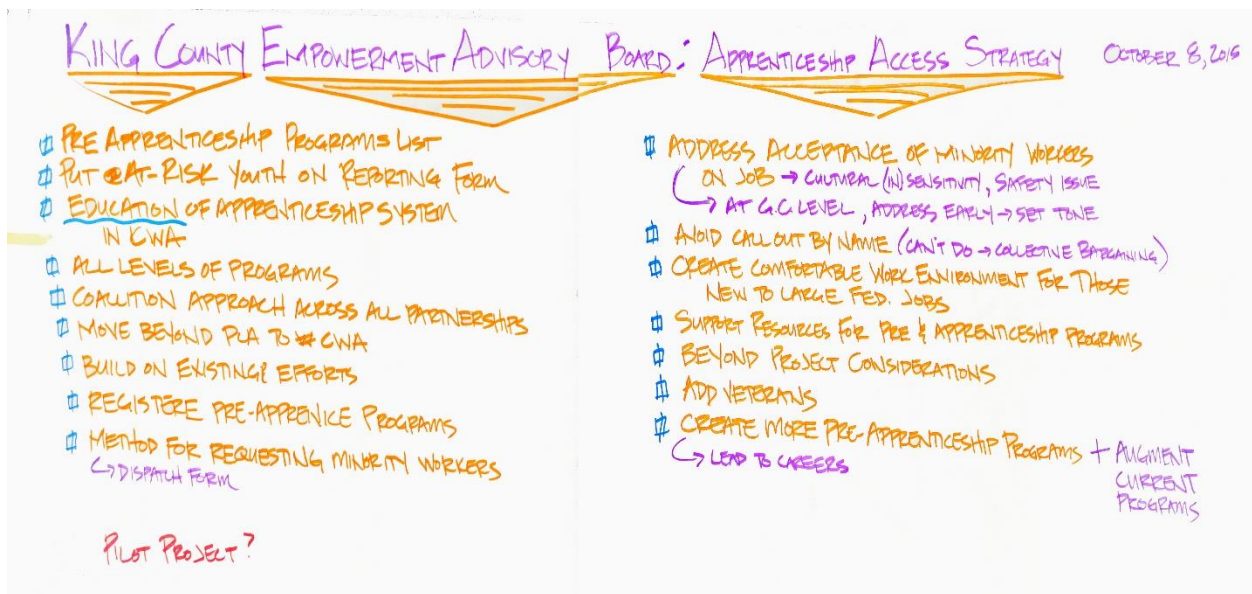 KING COUNTY EMPOWERMENT ADVISORY BOARD: APPRENTICESHIP ACCESS STRATEGY OCTOBER 8, 2015
PRE APPRENTICESHIP PROGRAMS LIST
PUT AT-RISK YOUTH ON REPORTING FORM
EDUCATION OF APPRENTICESHIP SYSTEM
IN CWA
ALL LEVELS OF PROGRAMS
COALITION APPROACH ACROSS ALL PARTNERSHIPS
MOVE BEYOND PLA TO CWA
BUILD ON EXISTING EFFORTS
REGISTERE PRE-APPRENICE PROGRAMS
METHOD FOR REQUESTING MINORITY WORKERS
↳ DISPATCH FORM
PILOT PROJECT?
ADDRESS ACCEPTANCE OF MINORITY WORKERS
ON JOB → CULTURAL (IN)SENSITIVITY, SAFETY ISSUE
→ AT G.C. LEVEL, ADDRESS EARLY → SET TONE
AVOID CALL OUT BY NAME (CAN'T DO → COLLECTIVE BARGAINING)
CREATE COMFORTABLE WORK ENVIRONMENT FOR THOSE
NEW TO LARGE FED. JOBS
SUPPORT RESOURCES FOR PRE & APPRENTICESHIP PROGRAMS
BEYOND PROJECT CONSIDERATIONS
ADD VETERANS
CREATE MORE PRE-APPRENTICESHIP PROGRAMS + AUGMENT
CURRENT
PROGRAMS
↳ LEAD TO CAREERS